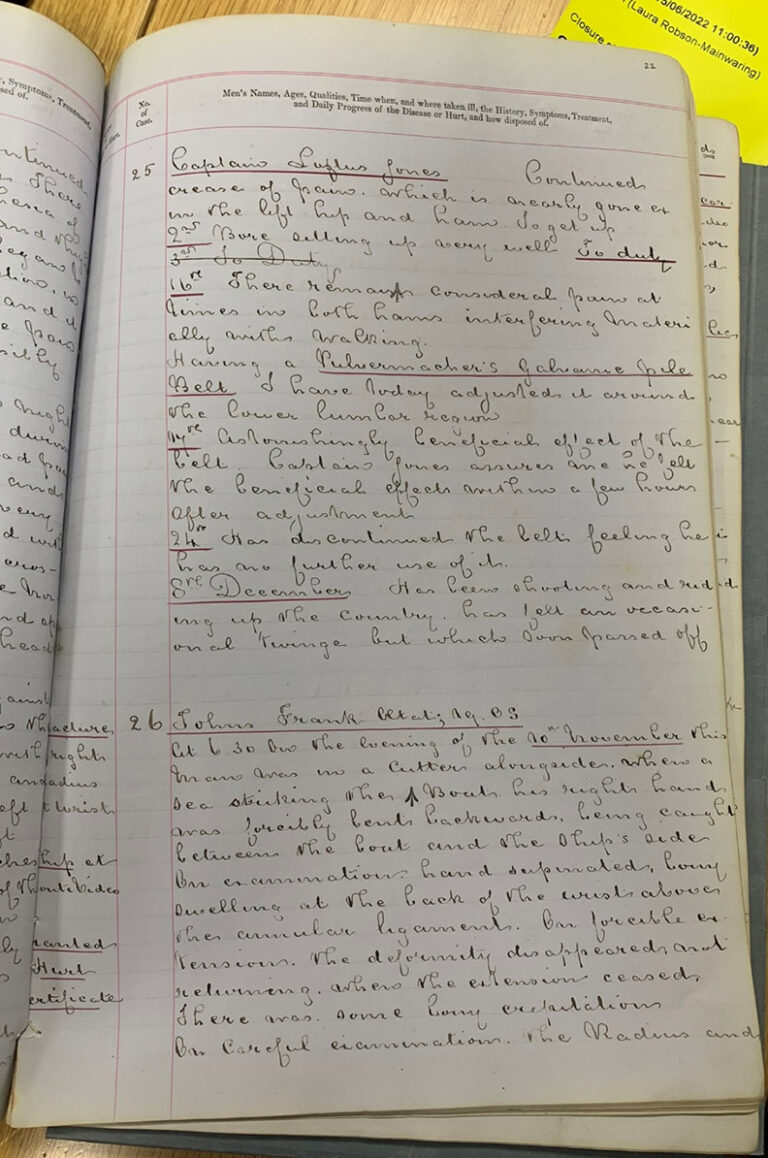 5/06/2022 11:00:36)
(Laura Robson-Mainwaring)
Closure
22
Symptoms, Treatment,
sed of.
No.
of
Case.
Men's Names, Ages, Qualities, Time when, and where taken ill, the History, Symptoms, Treatment,
and Daily Progress of the Disease or Hurt, and how disposed of.
25 Captain Loftus Jones Continued
crease of pain. Which is nearly gone ex
in the left hip and ham. To get up
2nd Bore sitting up very well To duty
3rd To Duty
16th There remains consideral pain at
times in both hams interfering materi
ally with walking.
Having a Pulvermacher's Galvanic pile
Belt I have today adjusted it around
the lower lumbar region
17th Astonishingly beneficial effect of the
belt. Captain Jones assures me he felt
the beneficial effects within a few hours
after adjustment
24th Has discontinued the belt feeling he
has no further use of it.
8th December Has been shooting and rid
ing up the country. has felt an occasi-
onal twinge but which soon passed off
26 Johns Frank Ætat; 19. OS
At 6.30 on the evening of the 10th November this
man was in a cutter alongside, when a
sea striking the Boat his right hand
was forcibly bent backwards, being caught
between the boat and the ship's side
On examination hand supinated, bony
swelling at the back of the wrist above
the annular ligament. On forcible ex
tension. the deformity disappeared, not
returning. when the extension ceased,
There was some bony crepitation
On careful examination. the Radius and
fracture
right
radius
wrist
ship at
of Monte Video
ranted
Hurt
ertificate